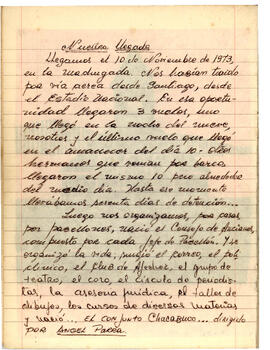 Nuestra llegada
Llegamos el 10 de Noviembre de 1973,
en la madrugada. Nos habían traído
por vía aérea desde Santiago, desde
el Estadio Nacional. En esa oportu-
nidad llegaron 3 vuelos, uno
que llegó en la noche del nueve,
nosotros y el último vuelo llegó
en el amanecer del día 10. Otros
hermanos que venían por barco
llegaron el mismo 10 pero alrededor
del medio día. Hasta ese momento
llevábamos sesenta días de detención...
Luego nos organizamos, por casas
por pabellones, nació el Consejo de Ancianos,
compuesto por cada Jefe de Pabellón. Y se
organizó la vida, surgió el correo, el poli
clínico, el club de Ajedrez, el grupo de
teatro, el coro, el círculo de periodis-
tas, la asesoría jurídica, el taller de
dibujos, los cursos de diversas materias
y nació... el conjunto Chacabuco... dirigido
por ANGEL PARRA